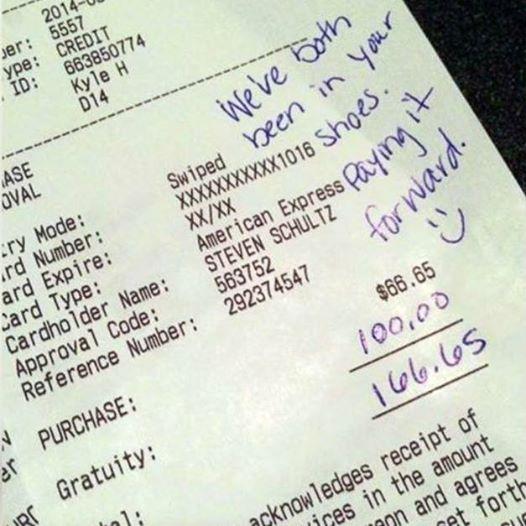 2014-0
5557
CREDIT
ype:
663850774
ID:
Kyle H
D14
We've both
been in your
shoes.
Paying it
forward.
ASE
OVAL
ry Mode: Swiped
rd Number: XXXXXXXXXXX1016
ard Expire: XX/XX
Card Type: American Express
Cardholder Name: STEVEN SCHULTZ
Approval Code: 563752
Reference Number: 292374547
PURCHASE: $66.65
Gratuity: 100.00
166.65
acknowledges receipt of
ices in the amount
on and agrees
et forth